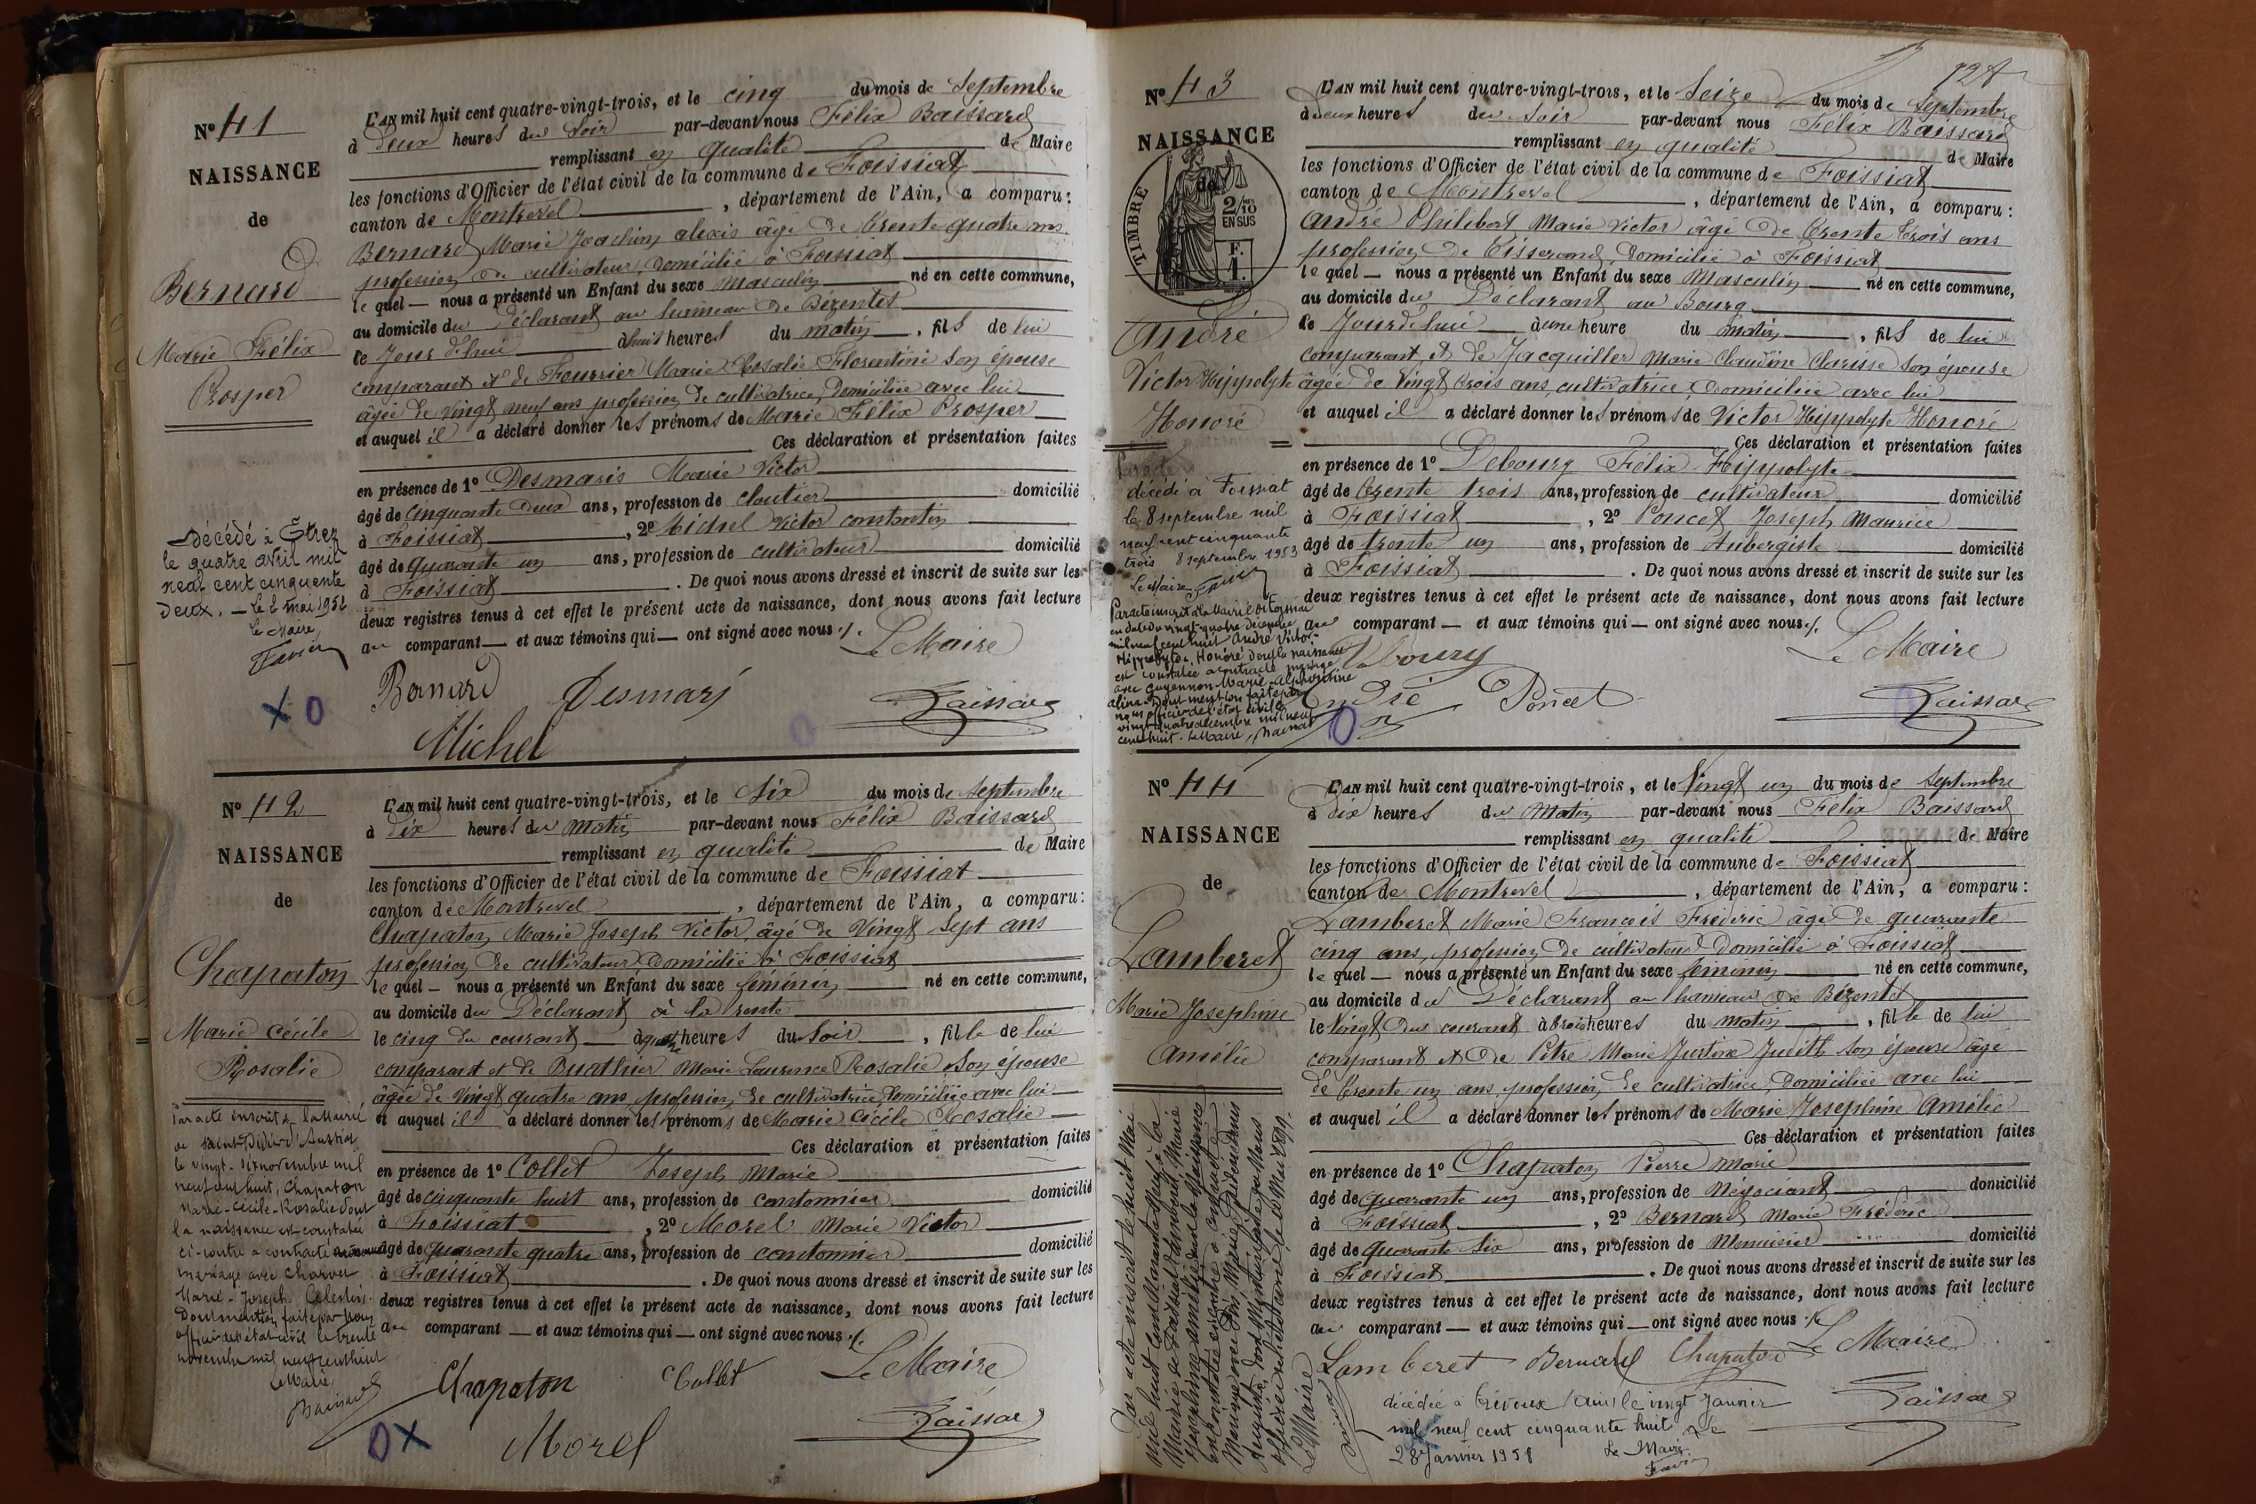 N° 41
NAISSANCE
de
Bernard
Marie Félix
Prosper
L'AN mil huit cent quatre-vingt-trois, et le cinq du mois de Septembre
à deux heures du Soir par-devant nous Félix Baissard
remplissant en qualité de Maire
les fonctions d'Officier de l'état civil de la commune de Foissiat
canton de Montrevel, département de l'Ain, a comparu :
Bernard Marie Joachim alexis âgé de trente quatre ans
profession de cultivateur, domicilié à Foissiat
le quel — nous a présenté un Enfant du sexe masculin né en cette commune,
au domicile du Déclarant au hameau de Bézentet
le Jour d'hui à huit heures du matin, fils de lui
comparant et de Fourrier Marie Rosalie Florentine son épouse
âgée de vingt neuf ans profession de cultivatrice, domiciliée avec lui
et auquel il a déclaré donner les prénoms de Marie Félix Prosper
Ces déclaration et présentation faites
en présence de 1° Desmaris Marie Victor
âgé de cinquante deux ans, profession de cloutier domicilié
à Foissiat, 2° Michel Victor constantin
âgé de quarante un ans, profession de cultivateur domicilié
à Foissiat. De quoi nous avons dressé et inscrit de suite sur les
deux registres tenus à cet effet le présent acte de naissance, dont nous avons fait lecture
au comparant — et aux témoins qui — ont signé avec nous ./.
Le Maire
Décédé à Etrez
le quatre avril mil
neuf cent cinquante
deux. — le 2 mai 1952
le Maire,
Favier
Bernard Desmaris Baissard
Michel
X O
N° 42
NAISSANCE
de
Chapaton
Marie Cécile
Rosalie
L'AN mil huit cent quatre-vingt-trois, et le Six du mois de Septembre
à dix heures du matin par-devant nous Félix Baissard
remplissant en qualité de Maire
les fonctions d'Officier de l'état civil de la commune de Foissiat
canton de Montrevel, département de l'Ain, a comparu :
Chapaton Marie Joseph Victor, âgé de Vingt Sept ans
profession de cultivateur domicilié à Foissiat
le quel — nous a présenté un Enfant du sexe féminin né en cette commune,
au domicile du Déclarant à la
le cinq du courant à quatre heures du Soir, fille de lui
comparant et de Buathier Marie Laurence Rosalie son épouse
âgée de vingt quatre ans profession de cultivatrice, domiciliée avec lui
et auquel il a déclaré donner les prénoms de Marie Cécile Rosalie
Ces déclaration et présentation faites
en présence de 1° Collet Joseph Marie
âgé de cinquante huit ans, profession de cantonnier domicilié
à Foissiat, 2° Morel Marie Victor
âgé de quarante quatre ans, profession de cantonnier domicilié
à Foissiat. De quoi nous avons dressé et inscrit de suite sur les
deux registres tenus à cet effet le présent acte de naissance, dont nous avons fait lecture
au comparant — et aux témoins qui — ont signé avec nous ./.
Le Maire
Par acte inscrit à la Mairie
de Saint-Didier d'Aussiat
le vingt-six novembre mil
neuf cent huit, Chapaton
Marie-Cécile-Rosalie dont
la naissance est constatée
ci-contre a contracté
mariage avec Charvet
Marie-Joseph Célestin.
Dont mention faite par nous
officier de l'état-civil le trente
novembre mil neuf cent huit
Le Maire,
Baissard
Chapaton Collet Baissard
Morel
O X
728
N° 43
NAISSANCE
de
TIMBRE
2/10 EN SUS
F. 1.
André
Victor Hippolyte
Honoré
L'AN mil huit cent quatre-vingt-trois, et le Seize du mois de Septembre
à deux heures du soir par-devant nous Félix Baissard
remplissant en qualité de Maire
les fonctions d'Officier de l'état civil de la commune de Foissiat
canton de Montrevel, département de l'Ain, a comparu :
André Philibert Marie Victor âgé de trente trois ans
profession de Tisserand, domicilié à Foissiat
le quel — nous a présenté un Enfant du sexe Masculin né en cette commune,
au domicile du Déclarant au Bourg
le Jour d'hui à une heure du matin, fils de lui
comparant, et de Jacquiller Marie Claudine Clarisse son épouse
âgée de Vingt trois ans, cultivatrice, domiciliée avec lui
et auquel il a déclaré donner les prénoms de Victor Hippolyte Honoré
Ces déclaration et présentation faites
en présence de 1° Debourg Félix Hippolyte
âgé de trente trois ans, profession de cultivateur domicilié
à Foissiat, 2° Poncet Joseph Maurice
âgé de trente un ans, profession de Aubergiste domicilié
à Foissiat. De quoi nous avons dressé et inscrit de suite sur les
deux registres tenus à cet effet le présent acte de naissance, dont nous avons fait lecture
au comparant — et aux témoins qui — ont signé avec nous ./.
Le Maire
décédé à Foissiat
le 8 septembre mil
neuf cent cinquante
trois 8 septembre 1953
Le Maire
Par acte inscrit à la Mairie de Foissiat
en date du vingt-quatre décembre
mil neuf cent huit André Victor-
Hippolyte Honoré dont la naissance
est constatée a contracté mariage
avec Guyennon-Marie-Alphonsine
Alina. Dont mention faite par
nous officier de l'état civil le
vingt-quatre décembre mil neuf
cent huit. Le Maire, Baissard
Debourg
André Poncet Baissard
O
N° 44
NAISSANCE
de
Lamberet
Marie Josephine
Amélie
L'AN mil huit cent quatre-vingt-trois, et le Vingt un du mois de Septembre
à dix heures du Matin par-devant nous Félix Baissard
remplissant en qualité de Maire
les fonctions d'Officier de l'état civil de la commune de Foissiat
canton de Montrevel, département de l'Ain, a comparu :
Lamberet Marie François Fréderic âgé de quarante
cinq ans, profession de cultivateur domicilié à Foissiat
le quel — nous a présenté un Enfant du sexe féminin né en cette commune,
au domicile du Déclarant au hameau de Bézentet
le Vingt du courant à trois heures du matin, fille de lui
comparant et de Pitre Marie Justine Judith son épouse âgée
de trente un ans, profession de cultivatrice, domiciliée avec lui
et auquel il a déclaré donner les prénoms de Marie Josephine Amélie
Ces déclaration et présentation faites
en présence de 1° Chapaton Pierre Marie
âgé de quarante un ans, profession de Négociant domicilié
à Foissiat, 2° Bernard Marie Fréderic
âgé de quarante Six ans, profession de Menuisier domicilié
à Foissiat. De quoi nous avons dressé et inscrit de suite sur les
deux registres tenus à cet effet le présent acte de naissance, dont nous avons fait lecture
au comparant — et aux témoins qui — ont signé avec nous ./.
Le Maire
Lamberet Bernard Chapaton Baissard
Par acte inscrit le huit Mai
mil huit cent à la
Mairie de Foissiat, Lamberet, Marie
Josephine Amélie dont la Naissance
est constatée ci-contre a contracté
Mariage avec
dont Mention faite par Nous
officier de l'état civil, le Mai
Le Maire
décédée à Trévoux (Ain) le vingt Janvier
mil neuf cent cinquante huit
28 Janvier 1958
Le Maire
Favier